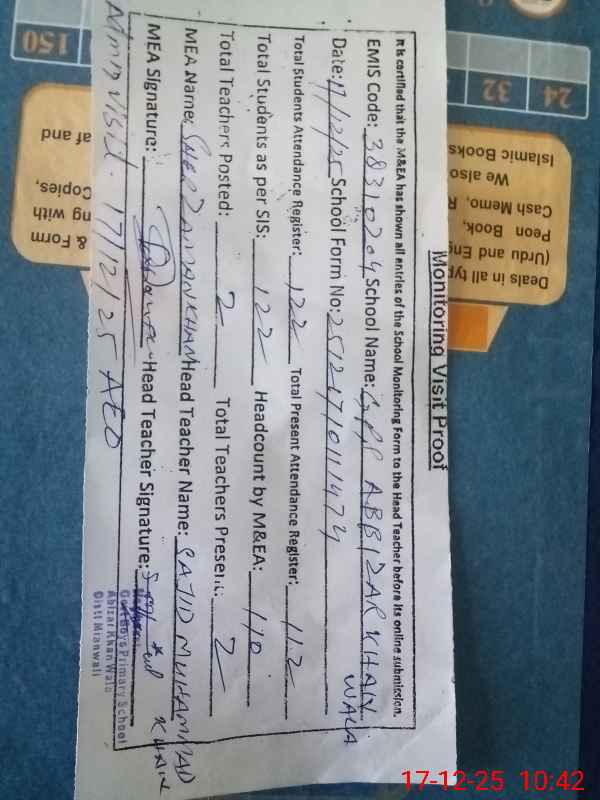 Monitoring Visit Proof
It is certified that the M&EA has shown all entries of the School Monitoring Form to the Head Teacher before its online submission.
EMIS Code: 38310204 School Name: GPS ABBIZAR KHAN WALA
Date: 17/12/25 School Form No: 
Total Students Attendance Register: 122 Total Present Attendance Register: 112
Total Students as per SIS: 122 Headcount by M&EA: 110
Total Teachers Posted: 2 Total Teachers Present: 2
MEA Name: SHER ZAMAN KHAN Head Teacher Name: SAJID MUHAMMAD KHAN
MEA Signature: Head Teacher Signature:
Govt Boys Primary School
Abizar Khan Wala
Distt Mianwali
Visit. 17/12/25 AEO
150
24
32
Deals in all typ
(Urdu and Eng
Peon Book,
Cash Memo, R
We also
Islamic Books
& Form
ng with
Copies,
af and
17-12-25 10:42